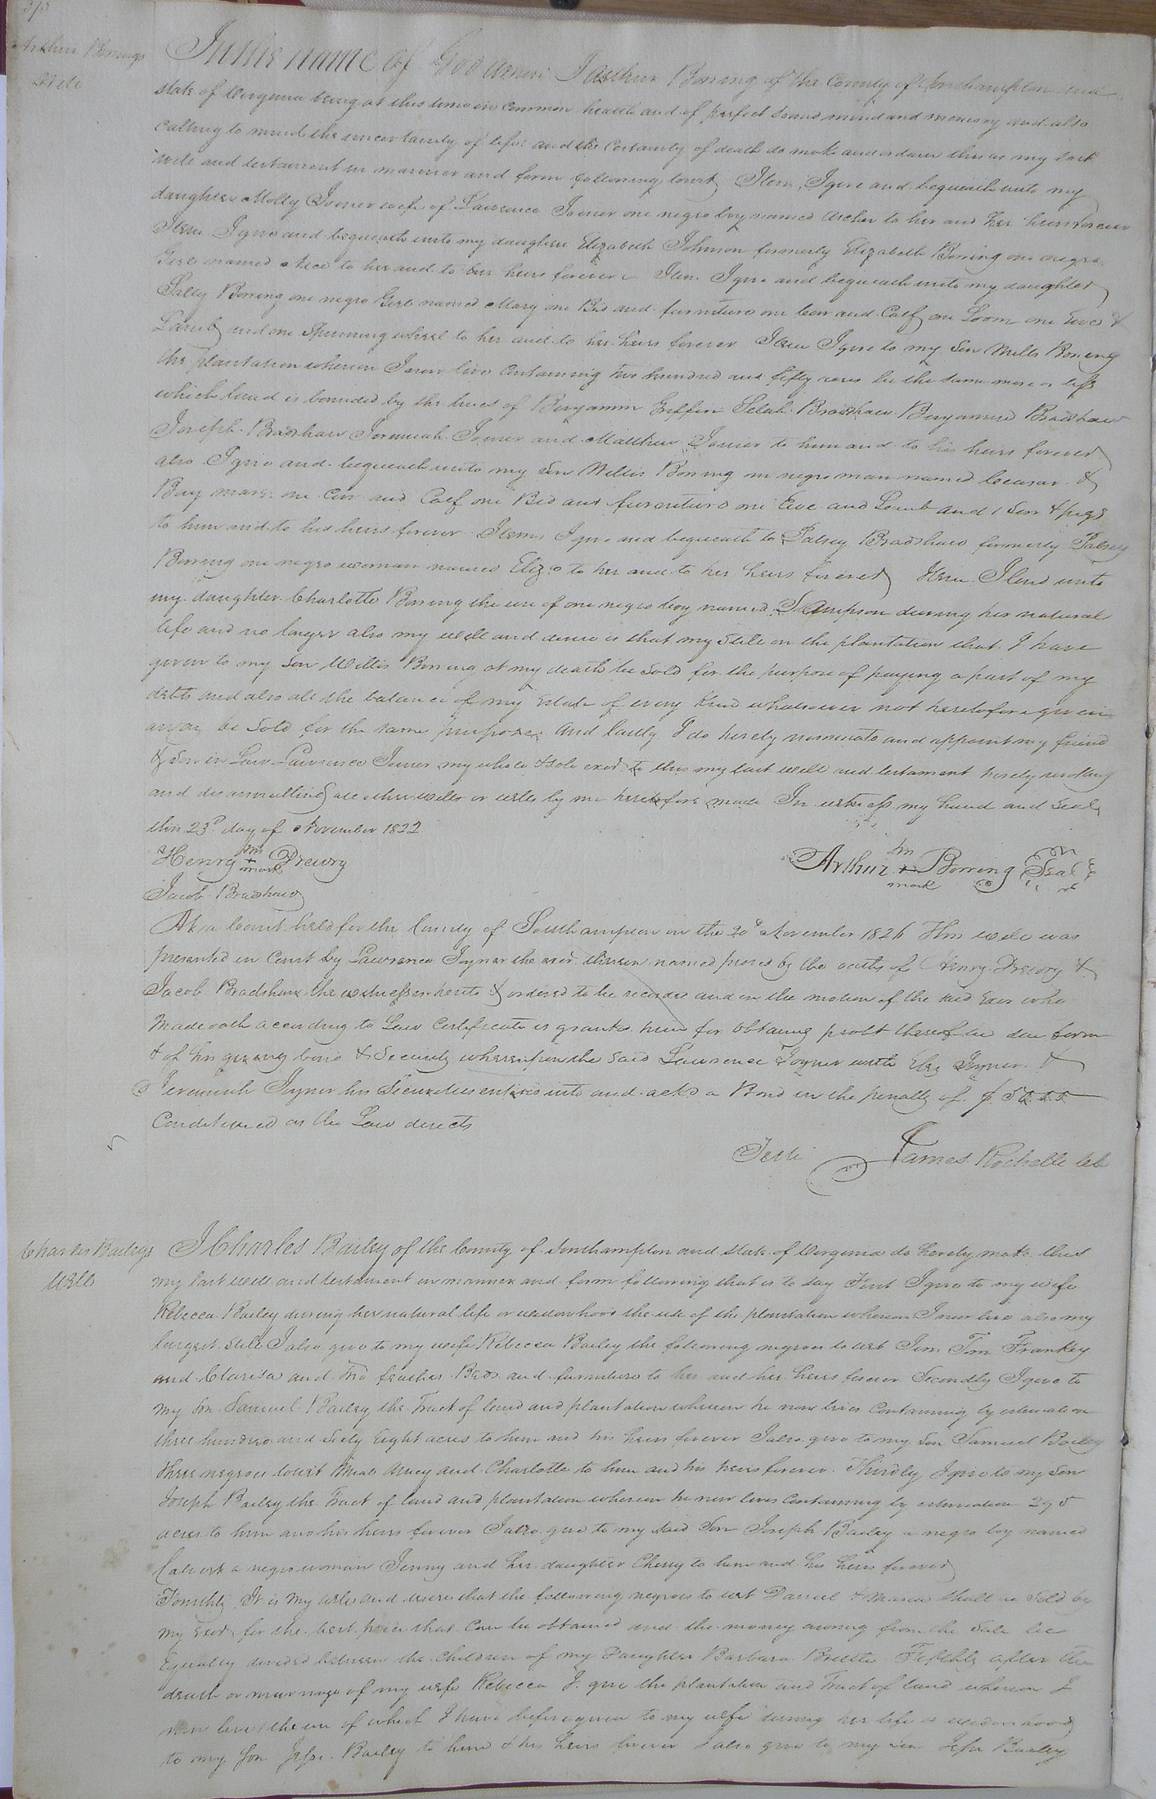 Arthur Borings
Will
In the name of God Amen I Arthur Boring of the County of Southampton and
state of Virginia being at this time in Common health and of perfect sound mind and memory and also
calling to mind the uncertainty of life and the Certainty of death do make and ordain this as my last
will and testament in manner and form following towit, Item, I give and bequeath unto my
daughter Molly Joiner wife of Lawrence Joiner one negro boy named Archer to her and her heirs forever
Item I give and bequeath unto my daughter Elizabeth Johnson formerly Elizabeth Boring one negro
Girl named to her and to her heirs forever Item I give and bequeath unto my daughter
Salley Boring one negro Girl named Mary one Bed and furniture one Cow and Calf one Loom one Ewe &
Lamb and one Spinning wheel to her and to her heirs forever Item I give to my Son Willis Boring
the plantation wherein I now live Containing two hundred and fifty acres be the same more or less
which land is bounded by the lines of Benjamin Griffin Selah Bradshaw Benjamin Bradshaw
Joseph Bradshaw Jeremiah Joiner and Matthew Joiner to him and to his heirs forever
also I give and bequeath unto my Son Willis Boring one negro man named Ceasar &
Bay mare one Cow and Calf one Bed and furniture one Ewe and Lamb and 1 Sow & pigs
to him and to his heirs forever Item I give and bequeath to Patsey Bradshaw formerly Patsey
Boring one negro woman named Eliza to her and to her heirs forever Item I lend unto
my daughter Charlotte Boring the use of one negro boy named Sampson during his natural
life and no longer also my will and desire is that my Still on the plantation that I have
given to my Son Willis Boring at my death be Sold for the purpose of paying a part of my
debts and also all the balance of my Estate of every kind whatsoever not heretofore given
away be Sold for the same purpose And lastly I do hereby nominate and appoint my friend
& Son in Law Lawrence Joiner my whole & Sole exor to this my last will and testament hereby revoking
and disannulling all other wills or wills by me heretofore made In witness my hand and Seal
this 23d day of November 1822
Henry his + mark Drewry
Arthur his + mark Boring Seal
Jacob Bradshaw
At a Court held for the County of Southampton on the 20th November 1826 This will was
presented in Court by Lawrence Joyner the exor therein named proved by the oaths of Henry Drewry &
Jacob Bradshaw the witnesses hereto & ordered to be recorded and on the motion of the said Exor who
made oath according to Law Certificate is granted him for obtaining probt thereof in due form
& of his giving bond & Security whereupon the said Lawrence Joyner with Joyner &
Jeremiah Joyner his Securities entered into and ackd a Bond in the penalty of $
Conditioned as the Law directs
Teste James Rochelle
Charles Baileys
Will
I Charles Bailey of the County of Southampton and state of Virginia do hereby make this
my last will and testament in manner and form following that is to say First I give to my wife
Rebecca Bailey during her natural life or widowhood the use of the plantation whereon I now live also my
largest Still I also give to my wife Rebecca Bailey the following negroes to wit Jim Tom Frankey
and Clarisa and two feather Beds and furniture to her and her heirs forever Secondly I give to
my Son Samuel Bailey the Tract of land and plantation whereon he now lives Containing by estimation
three hundred and Sixty Eight acres to him and his heirs forever I also give to my Son Samuel Bailey
three negroes towit Amey and Charlotte to him and his heirs forever. Thirdly I give to my Son
Joseph Bailey the Tract of land and plantation whereon he now lives Containing by estimation 295
acres to him and his heirs forever I also give to my said Son Joseph Bailey a negro boy named
a negro woman Jenny and her daughter Cherry to him and his heirs forever
Fourthly It is my will and desire that the following negroes to wit Daniel & shall be Sold by
my Exor for the best price that Can be obtained and the money arising from the Sale be
Equally divided between the Children of my Daughter Barbara Fifthly after the
death or marriage of my wife Rebecca I give the plantation and Tract of land whereon I
now live the use of which I have before given to my wife during her life or widowhood
to my Son Jesse Bailey to him & his heirs forever I also give to my Son Jesse Bailey